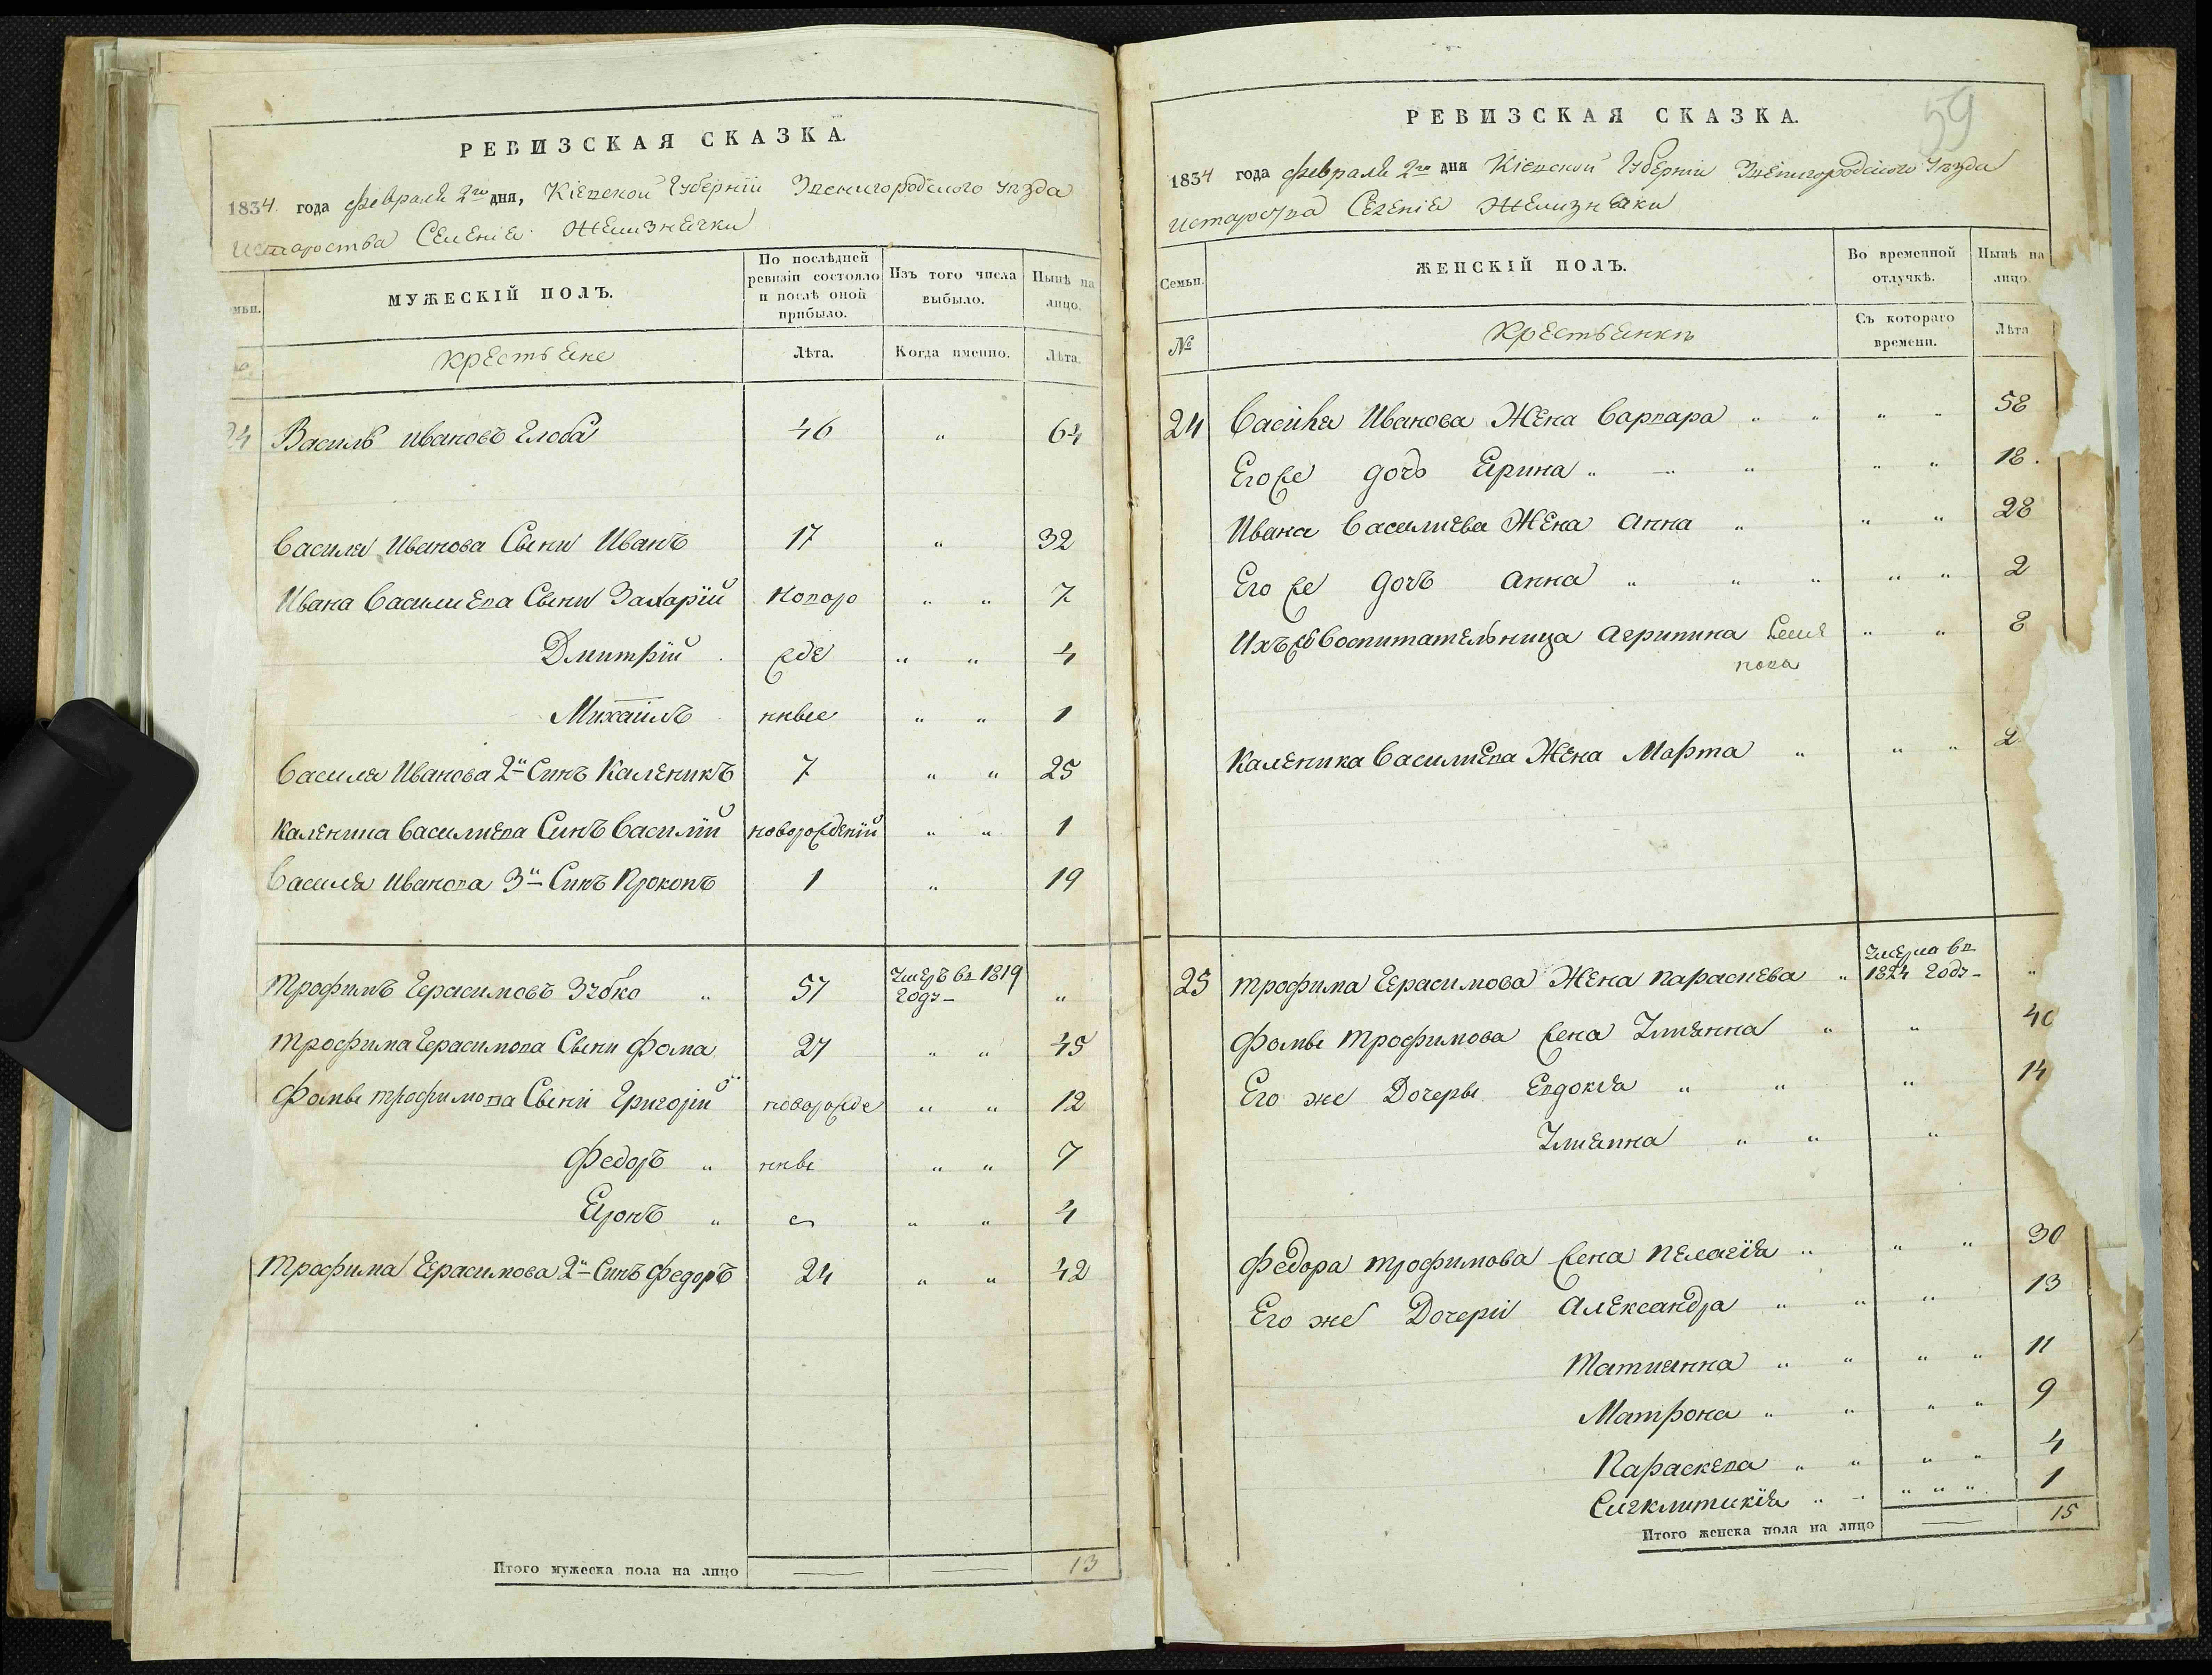 РЕВИЗСКАЯ СКАЗКА.
1834 года февраля 2го дня, Кіевской Губерніи Звенигородского уезда
Староства Селенія Желизнячки
мьи.
МУЖЕСКІЙ ПОЛЪ.
По послѣдней ревизіи состояло и послѣ оной прибыло.
Изъ того числа выбыло.
Нынѣ на лицо.
крестьяне
Лѣта.
Когда именно.
Лѣта.
24 Василь Ивановъ Глоба 46 " 64
Василя Иванова Сыни Иванъ 17 " 32
Ивана Василиева Сыни Захарій новоро " " 7
Дмитрій жде " " 4
Михаилъ нные " " 1
Василя Иванова 2й Синъ Каленикъ 7 " " 25
Каленика Василиева Синъ Василій новорожденій " " 1
Василя Иванова 3й Синъ Прокопъ 1 " 19
Трофимъ Герасимовъ Зубко " 57 Умеръ въ 1819 годѣ "
Трофима Герасимова Сыни Фома 27 " " 45
Фомы Трофимова Сыни Григорій новорожде " " 12
Федоръ " нны " " 7
Яронъ " " " 4
Трофима Герасимова 2й Синъ Федоръ 24 " " 42
Итого мужеска пола на лицо 13
59
РЕВИЗСКАЯ СКАЗКА.
1834 года февраля 2го дня Кіевской Губерніи Звенигородского уезда
Староства Селенія Желизнячки
Семьи.
ЖЕНСКІЙ ПОЛЪ.
Во временной отлучкѣ.
Нынѣ на лицо.
№
крестьянки
Съ котораго времени.
Лѣта
24 Василя Иванова Жена Варвара " " " " 58
Его же дочь Ярина " " " " 18
Ивана Василиева Жена Анна " " " 28
Его же дочь Анна " " " " " 2
Ихъ же Воспитательница Агрипина " " 8
Каленика Василиева Жена Марта " " " 2
25 Трофима Герасимова Жена Параскева " Умерла въ 1824 годѣ "
Фомы Трофимова жена Улиянна " " 40
Его же Дочеры Евдокия " " " 14
Улиянна " " "
Федора Трофимова жена Пелагія " " " 30
Его же Дочеріи Александра " " " 13
Татианна " " " " 11
Матрона " " " " 9
Параскева " " " " 4
Сигклитикія " " " " 1
Итого женска пола на лицо 15